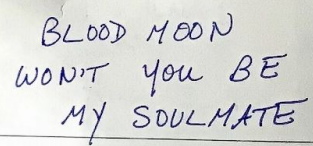 BLOOD MOON
WON'T YOU BE
MY SOULMATE